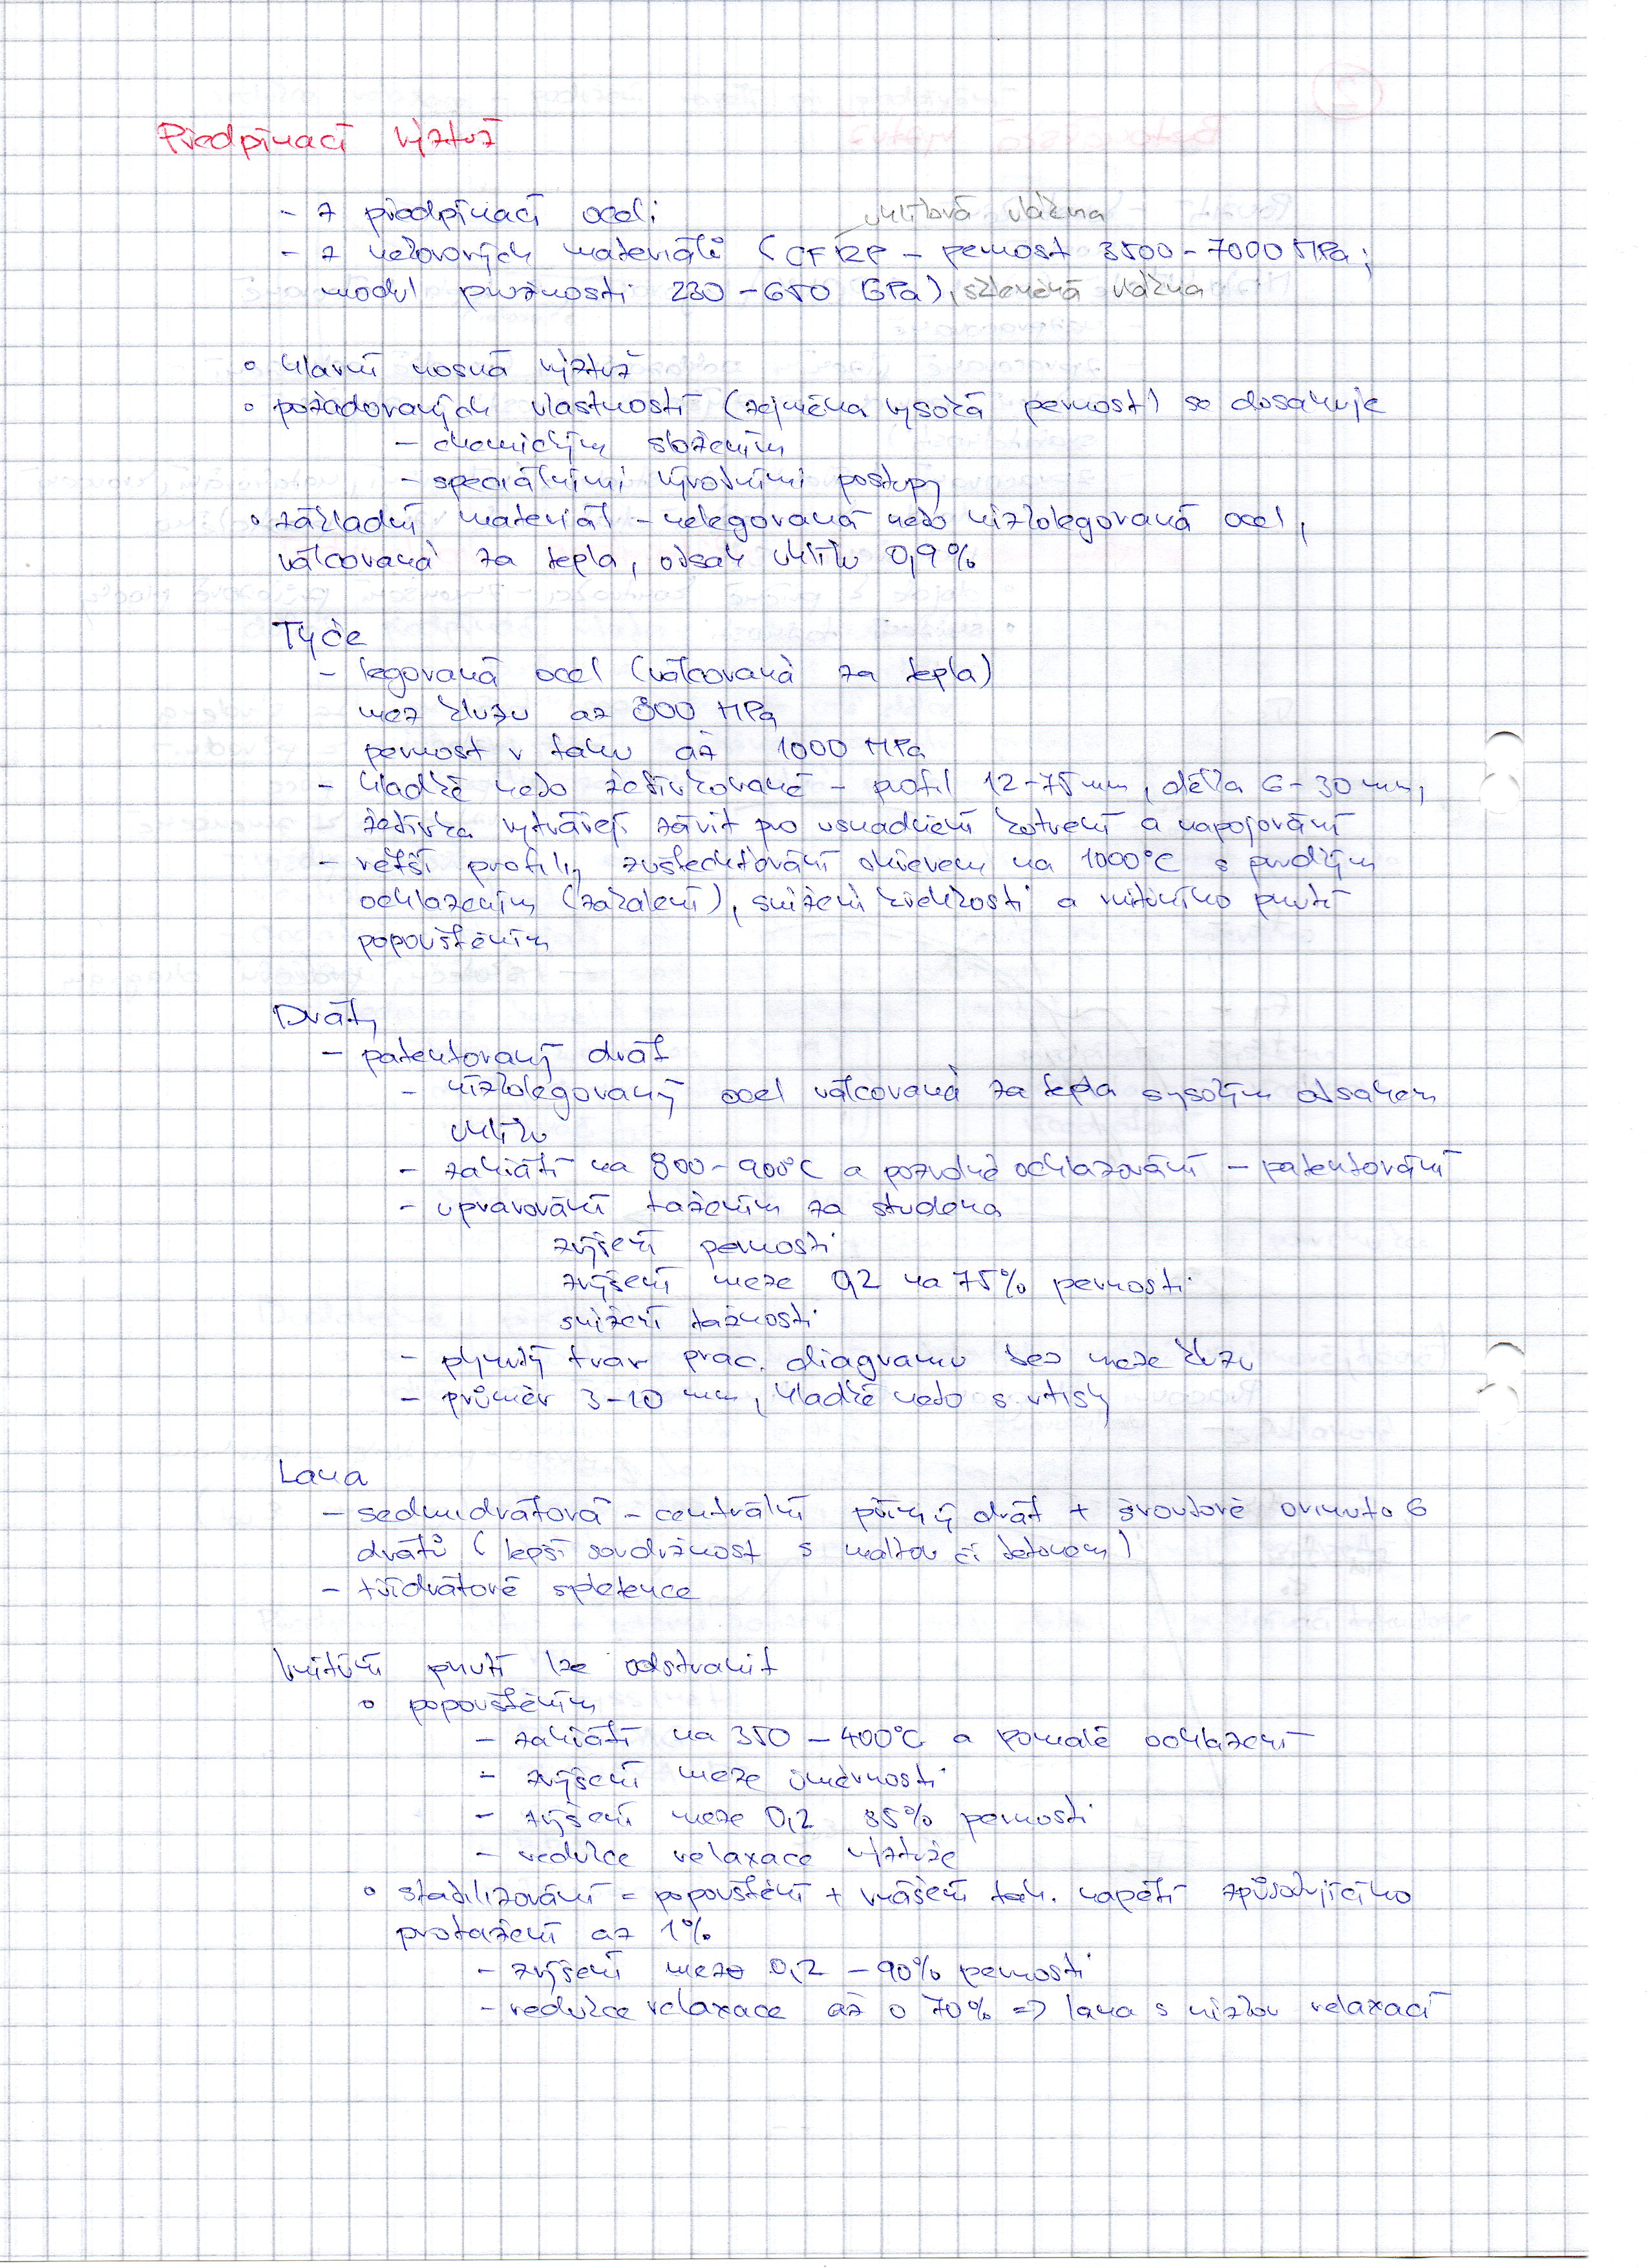 Předpínací výztuž
- z předpínací oceli
uhlíková vlákna
- z nekovových materiálů (CFRP - pevnost 3500-7000 MPa;
modul pružnosti 230-650 GPa), skleněná vlákna
• hlavní nosná výztuž
• požadovaných vlastností (zejména vysoká pevnost) se dosahuje
- chemickým složením
- speciálními výrobními postupy
• základní materiál - nelegovaná nebo nízkolegovaná ocel,
válcovaná za tepla, obsah uhlíku 0,9%
Tyče
- legovaná ocel (válcovaná za tepla)
mez kluzu až 800 MPa
pevnost v tahu až 1000 MPa
- hladké nebo žebírkované - profil 12-75 mm, délka 6-30 mm,
žebírka vytvářejí závit pro usnadnění kotvení a napojování
- větší profily zušlechťování ohřevem na 1000°C s prudkým
ochlazením (zakalení), snížení křehkosti a vnitřního pnutí
popouštěním
Dráty
- patentovaný drát
- nízkolegovaný ocel válcovaná za tepla s vysokým obsahem
uhlíku
- zahřátí na 800-900°C a pozvolné ochlazování - patentování
- upravování tažením za studena
zvýšení pevnosti
zvýšení meze 0,2 na 75% pevnosti
snížení tažnosti
- plynulý tvar prac. diagramu bez meze kluzu
- průměr 3-10 mm, hladké nebo s vtisky
Lana
- sedmidrátová - centrální přímý drát + šroubově ovinuto 6
drátů (lepší soudržnost s maltou či betonem)
- třídrátové spletence
Vnitřní pnutí lze odstranit
• popouštěním
- zahřátí na 350-400°C a pomalé ochlazení
- zvýšení meze úměrnosti
- zvýšení meze 0,2 85% pevnosti
- redukce relaxace výztuže
• stabilizování = popouštění + vnášení tah. napětí způsobujícího
protažení až 1%
- zvýšení meze 0,2 - 90% pevnosti
- redukce relaxace až o 70% => lana s nízkou relaxací